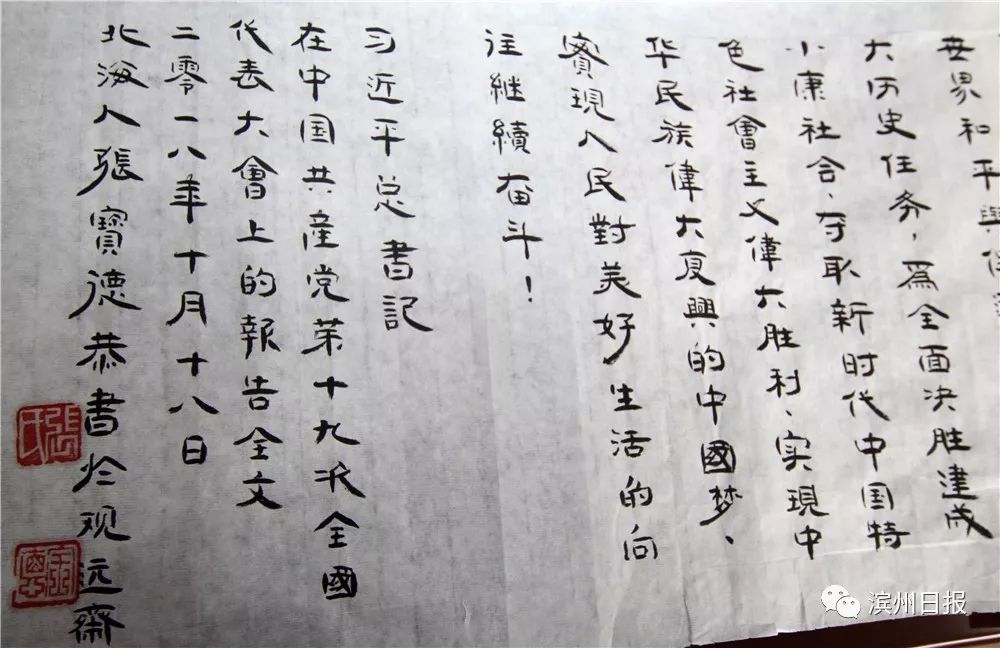 世界和平與
大历史任务，爲全面决胜建成
小康社会、夺取新时代中国特
色社會主义偉大胜利、实現中
华民族偉大复興的中國梦、
實現人民對美好生活的向
往继續奋斗！
习近平总書記
在中国共産党第十九次全國
代表大會上的報告全文
二零一八年十月十八日
北海人張寶德恭書於观远斋
張氏
寶德
滨州日报